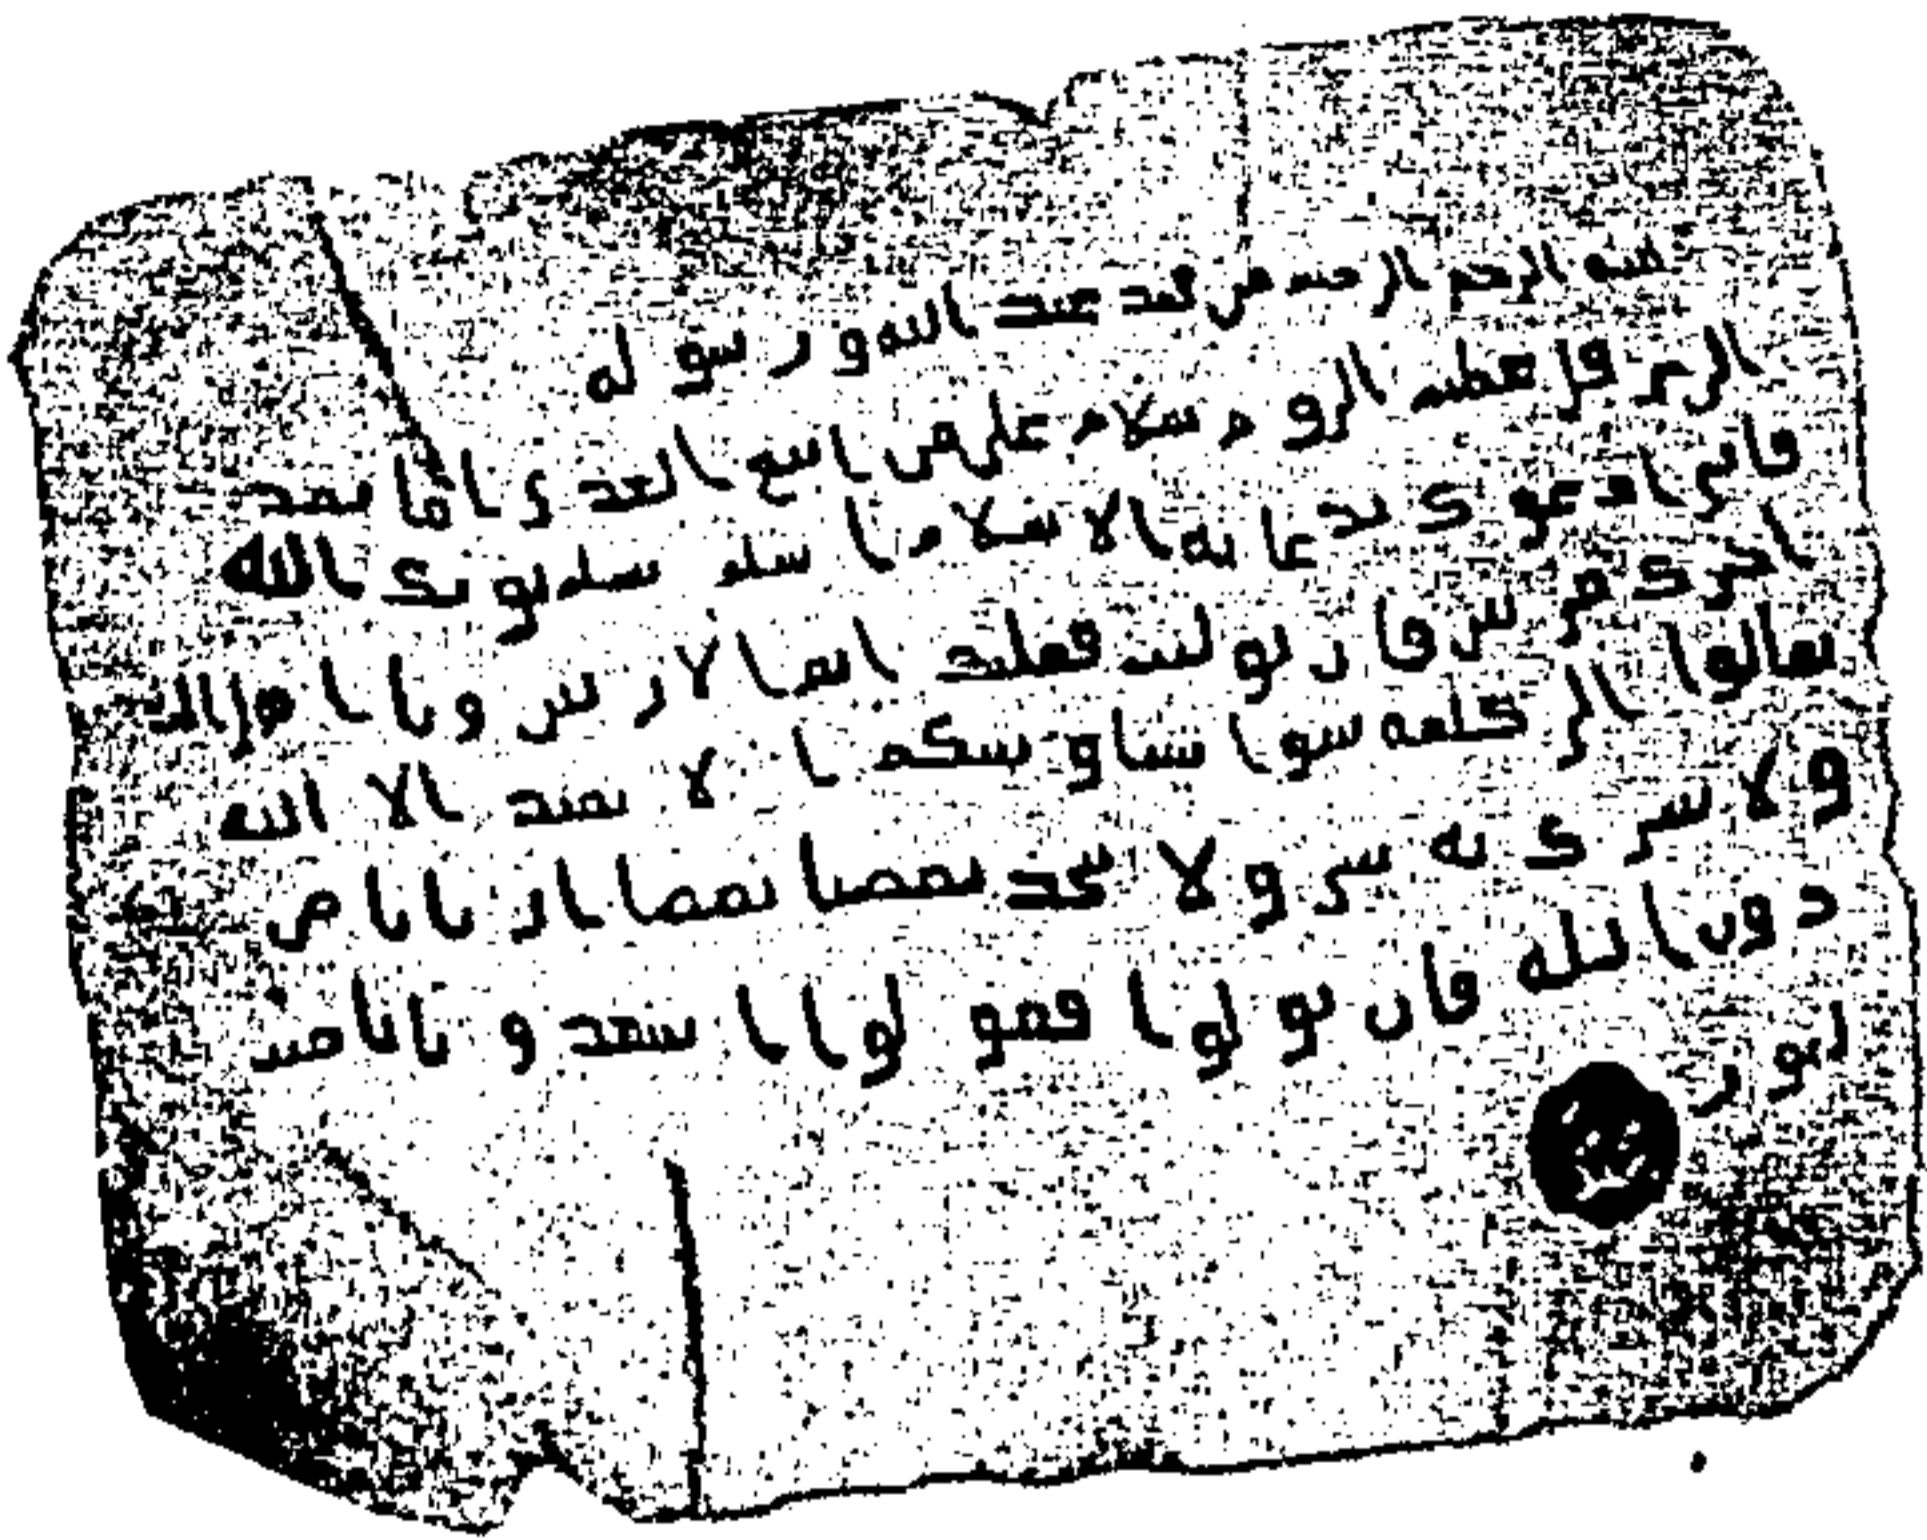 بسم الله الرحمن الرحيم من محمد عبد الله ورسوله
الى هرقل عظيم الروم سلام على من اتبع الهدى اما بعد
فانى ادعوك بدعاية الاسلام اسلم تسلم يوتك الله
اجرك مرتين فان توليت فعليك اثم الاريسين ويا اهل
تعالوا الى كلمة سوا بيننا وبينكم الا نعبد الا الله
ولا نشرك به ولا يتخذ بعضنا بعضا اربابا من
دون الله فان تولوا فقولوا اشهدوا باننا